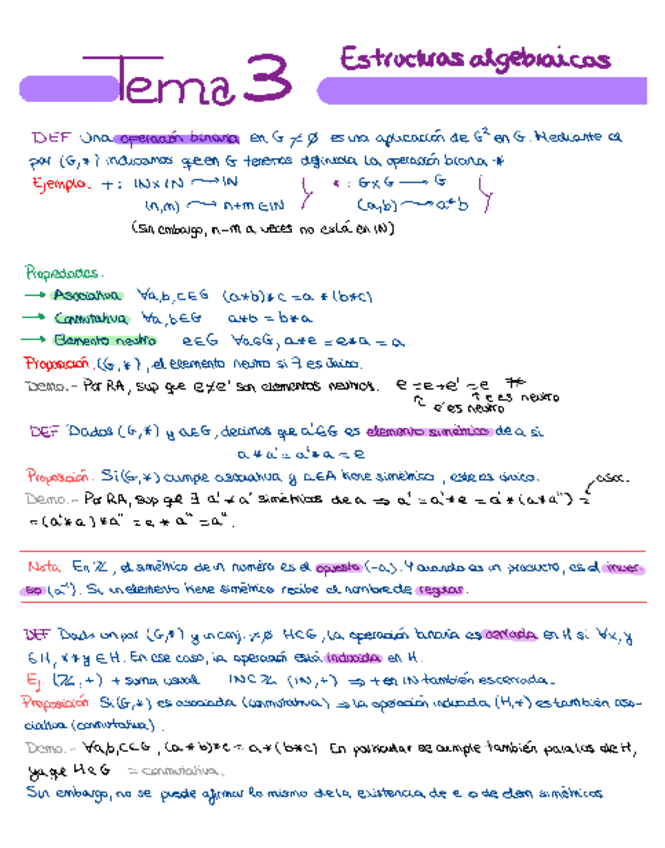 Tema 3 Estructuras algebraicas
DEF Una operación binaria en G ≠ ∅ es una aplicación de G² en G. Mediante el
par (G,*) indicamos que en G tenemos definida la operación binaria *
Ejemplo. + : ℕ×ℕ → ℕ } * : G×G → G }
(n,m) → n+m ∈ ℕ (a,b) → a*b
(Sin embargo, n-m a veces no está en ℕ)
Propiedades.
→ Asociativa ∀a,b,c∈G (a*b)*c = a*(b*c)
→ Conmutativa ∀a,b∈G a*b = b*a
→ Elemento neutro e∈G ∀a∈G, a*e = e*a = a
Proposición. (G,*), el elemento neutro si ∃ es único.
Demo.- Por RA, sup que e≠e' son elementos neutros. e = e*e' = e
e es neutro
e' es neutro
DEF Dados (G,*) y a∈G, decimos que a'∈G es elemento simétrico de a si
a*a' = a'*a = e
Proposición. Si (G,*) cumple asociativa y a∈A tiene simétrico, este es único.
asoc.
Demo.- Por RA, sup que ∃ a' ≠ a'' simétricos de a ⇒ a' = a'*e = a'*(a*a'') =
= (a'*a)*a'' = e*a'' = a''.
Nota. En ℤ, el simétrico de un número es el opuesto (-a). Y cuando es un producto, es el inver-
so (a⁻¹). Si un elemento tiene simétrico recibe el nombre de regular.
DEF Dado un par (G,*) y un conj. ≠∅ H⊂G, la operación binaria es cerrada en H si ∀x,y
∈H, x*y∈H. En ese caso, la operación está inducida en H.
Ej. (ℤ,+) + suma usual ℕ⊂ℤ (ℕ,+) ⇒ + en ℕ también es cerrada.
Proposición. Si (G,*) es asociada (conmutativa) ⇒ la operación inducida (H,*) es también aso-
ciativa (conmutativa).
Demo.- ∀a,b,c∈G, (a*b)*c = a*(b*c) En particular se cumple también para los de H,
ya que H⊂G = conmutativa.
Sin embargo, no se puede afirmar lo mismo de la existencia de e o de elem simétricos